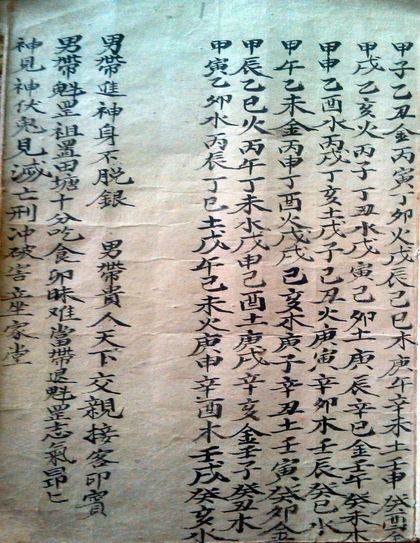 甲子乙丑金丙寅丁卯火戊辰己巳木庚午辛未土壬申癸酉金
甲戌乙亥火丙子丁丑水戊寅己卯土庚辰辛巳金壬午癸未木
甲申乙酉水丙戌丁亥土戊子己丑火庚寅辛卯木壬辰癸巳水
甲午乙未金丙申丁酉火戊戌己亥木庚子辛丑土壬寅癸卯金
甲辰乙巳火丙午丁未水戊申己酉土庚戌辛亥金壬子癸丑木
甲寅乙卯水丙辰丁巳土戊午己未火庚申辛酉木壬戌癸亥水
男帶進神身不脱銀 男帶貴人天下交親接客印賓
男帶魁罡祖置田塘十分吃食卯昧难當帶退魁罡志氣昂匕
神見神伏鬼見滅亡刑冲破害家堂